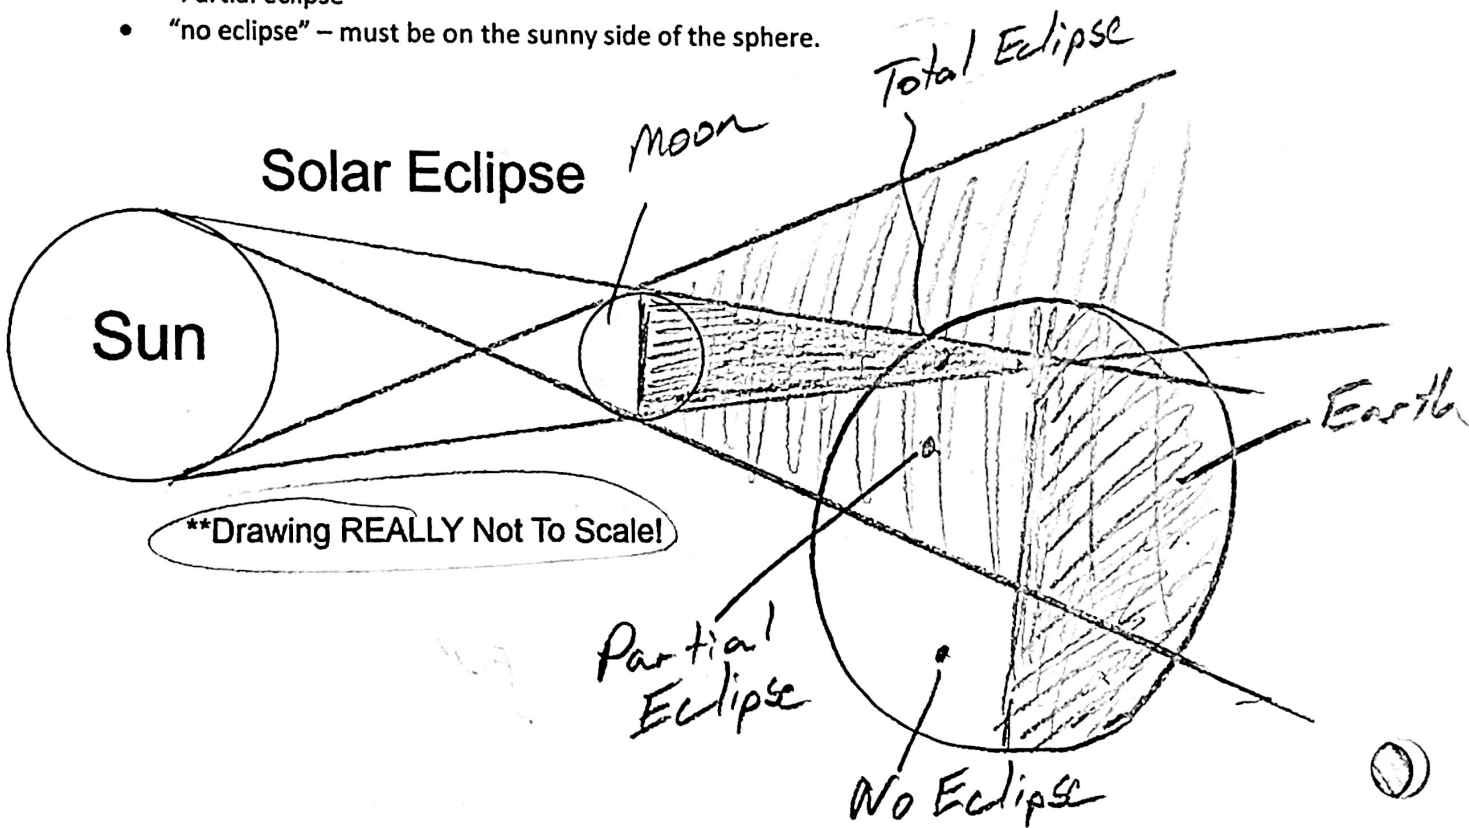 Partial eclipse
• “no eclipse” – must be on the sunny side of the sphere.
Total Eclipse
Moon
Solar Eclipse
Sun
Earth
**Drawing REALLY Not To Scale!
Partial
Eclipse
No Eclipse